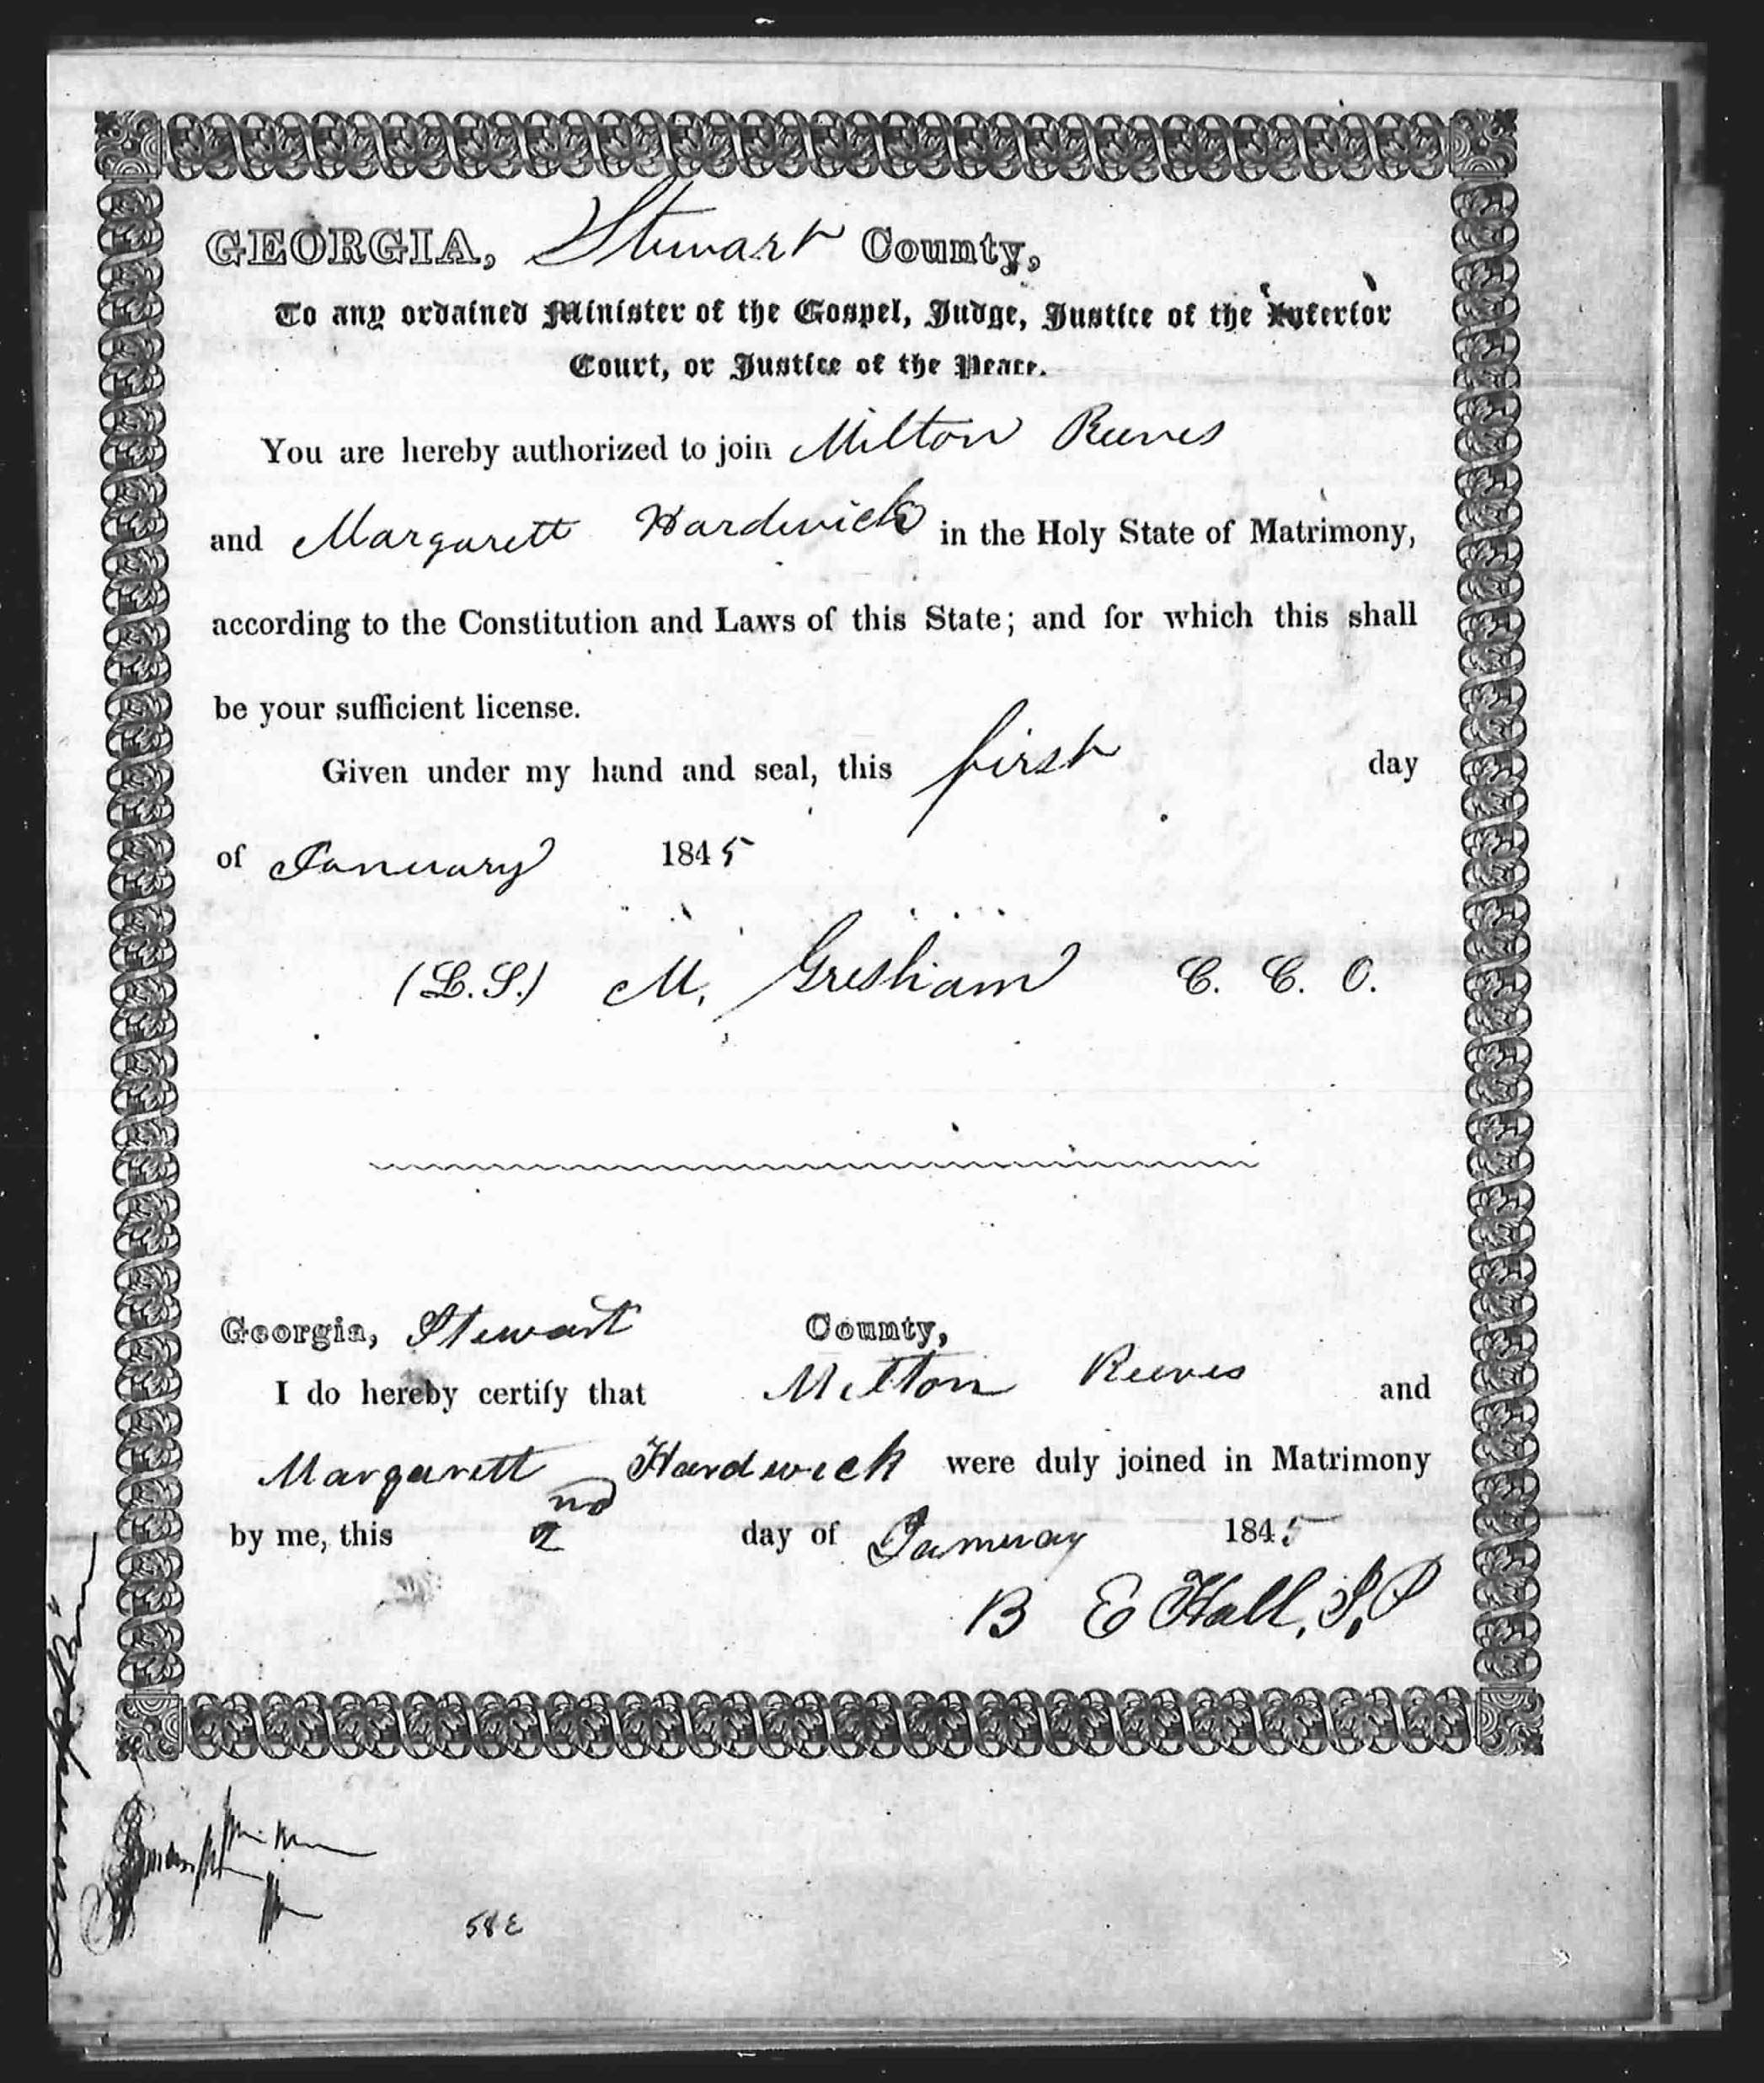 GEORGIA, Stewart County,
To any ordained Minister of the Gospel, Judge, Justice of the Inferior
Court, or Justice of the Peace.
You are hereby authorized to join Milton Reeves
and Margarett Hardwick in the Holy State of Matrimony,
according to the Constitution and Laws of this State; and for which this shall
be your sufficient license.
Given under my hand and seal, this first day
of January 1845
(L.S.) M. Gresham C. C. O.
Georgia, Stewart County,
I do hereby certify that Milton Reeves and
Margarett Hardwick were duly joined in Matrimony
by me, this 2nd day of Januray 1845
B E Hall, J, P